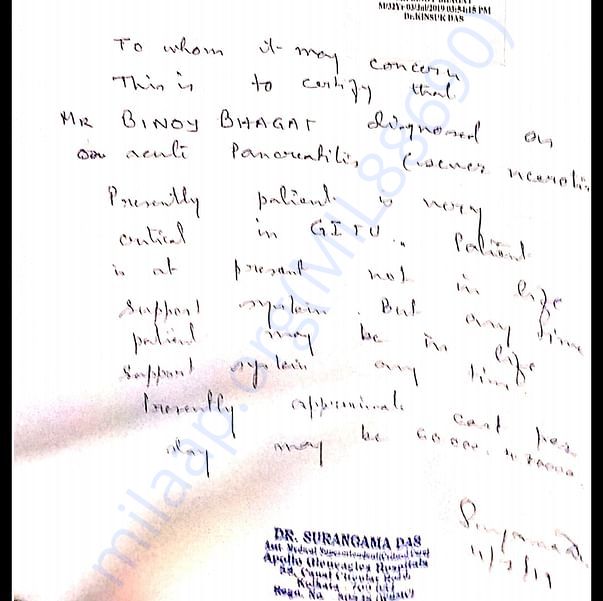 M/32Yr 03/Jul/2019 03:54:15 PM
Dr.KINSUK DAS
To whom it may concern
This is to certify that
MR BINOY BHAGAT diagnosed as
acute Pancreatitis (severe necrotic
Presently patient is very
critical in GITU.. Patient
is at present not in life
support system. But any time
patient may be in life
support system any time
Presently approximate cost per
day may be 60000
11/7/19
DR. SURANGAMA DAS
Apollo Gleneagles Hospitals
58, Canal Circular Road
Kolkata
Regd. No
milaap.org(MIL88690)